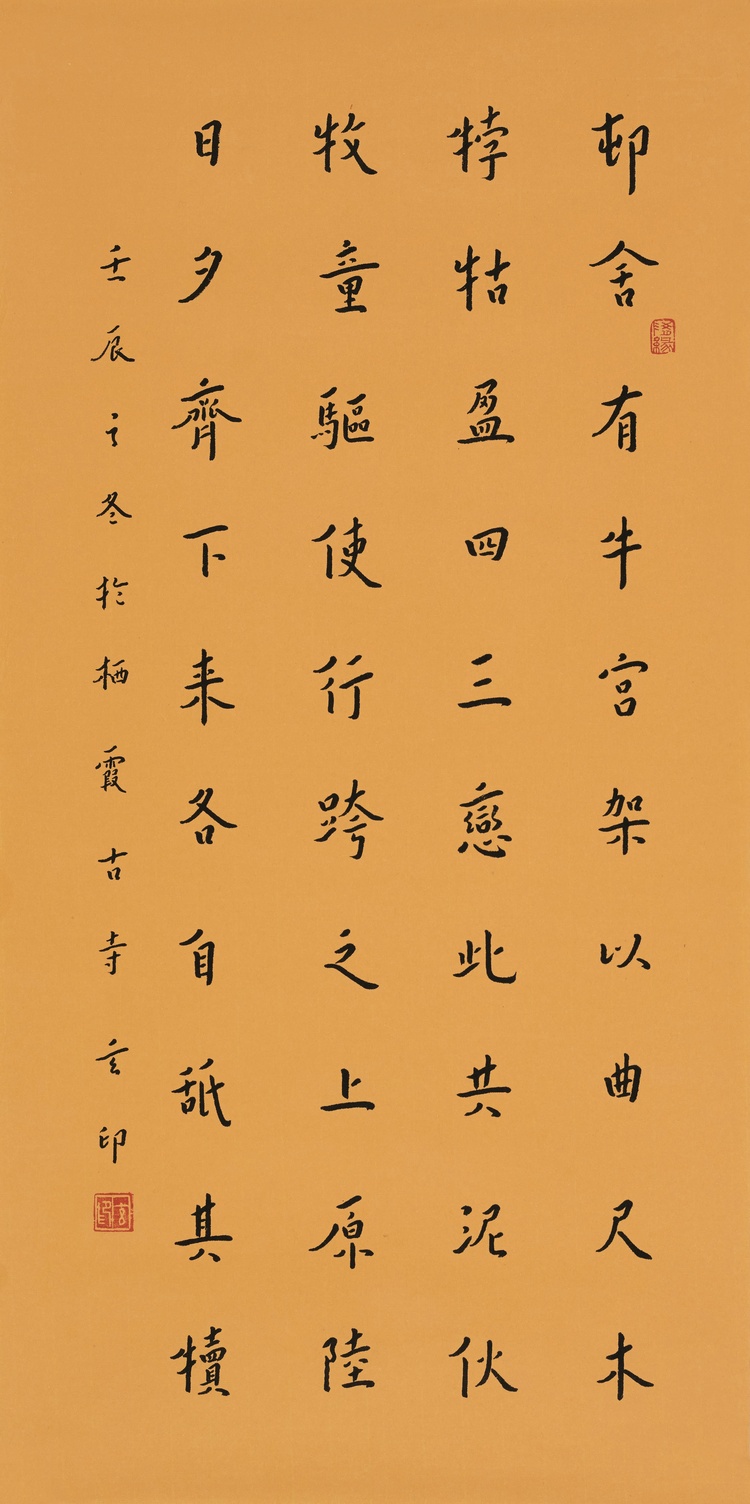 邨舍有牛宮架以曲尺木
牸牯盈四三戀此共泥伙
牧童驅使行跨之上原陸
日夕齊下来各自舐其犢
壬辰之冬於栖霞古寺玄印
隨緣
玄印